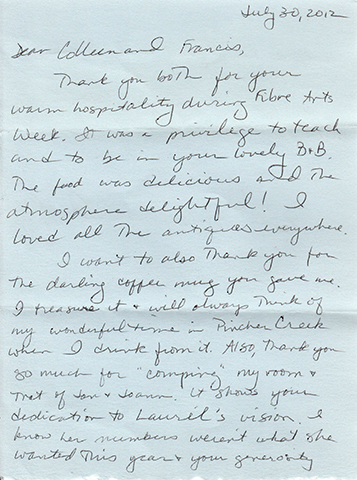 July 30, 2012
Dear Colleen and Francis,
Thank you both for your
warm hospitality during Fibre Arts
Week. It was a privilege to teach
and to be in your lovely B+B.
The food was delicious and the
atmosphere delightful! I
loved all the antiques everywhere.
I want to also thank you for
the darling coffee mug you gave me.
I treasure it + will always think of
my wonderful time in Pincher Creek
when I drink from it. Also, thank you
so much for "comping" my room +
that of Jan + Joann. It shows your
dedication to Laurel's vision. I
know her numbers weren't what she
wanted this year + your generosity